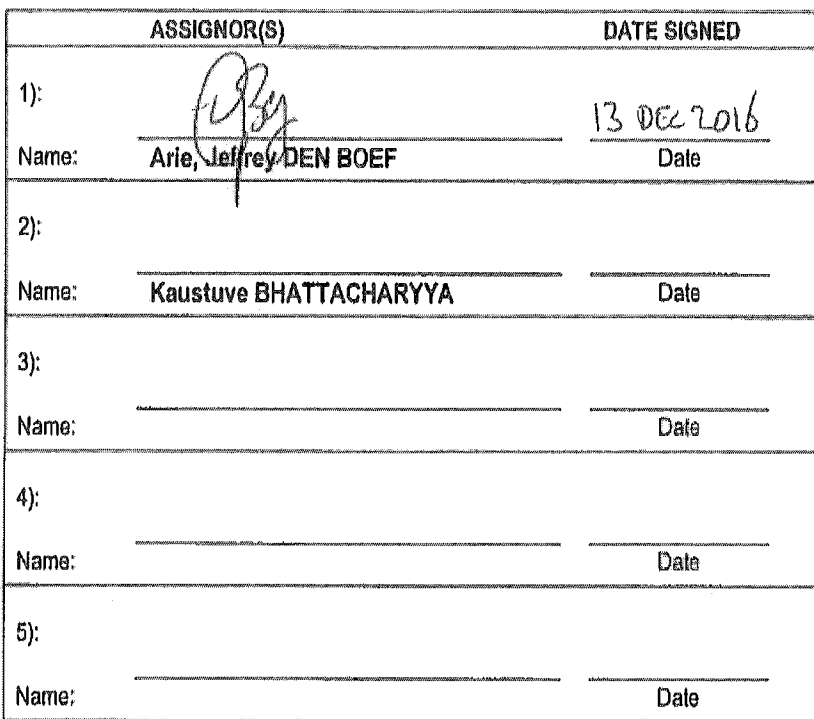 ASSIGNOR(S) DATE SIGNED
1):
13 DEC 2016
Name: Arie, Jeffrey DEN BOEF Date
2):
Name: Kaustuve BHATTACHARYYA Date
3):
Name: Date
4):
Name: Date
5):
Name: Date